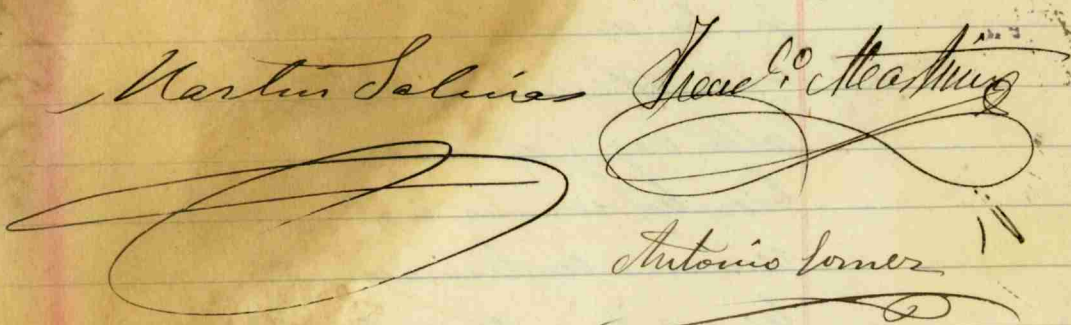 Martin Salinas
Martinez
Antonio Gomez